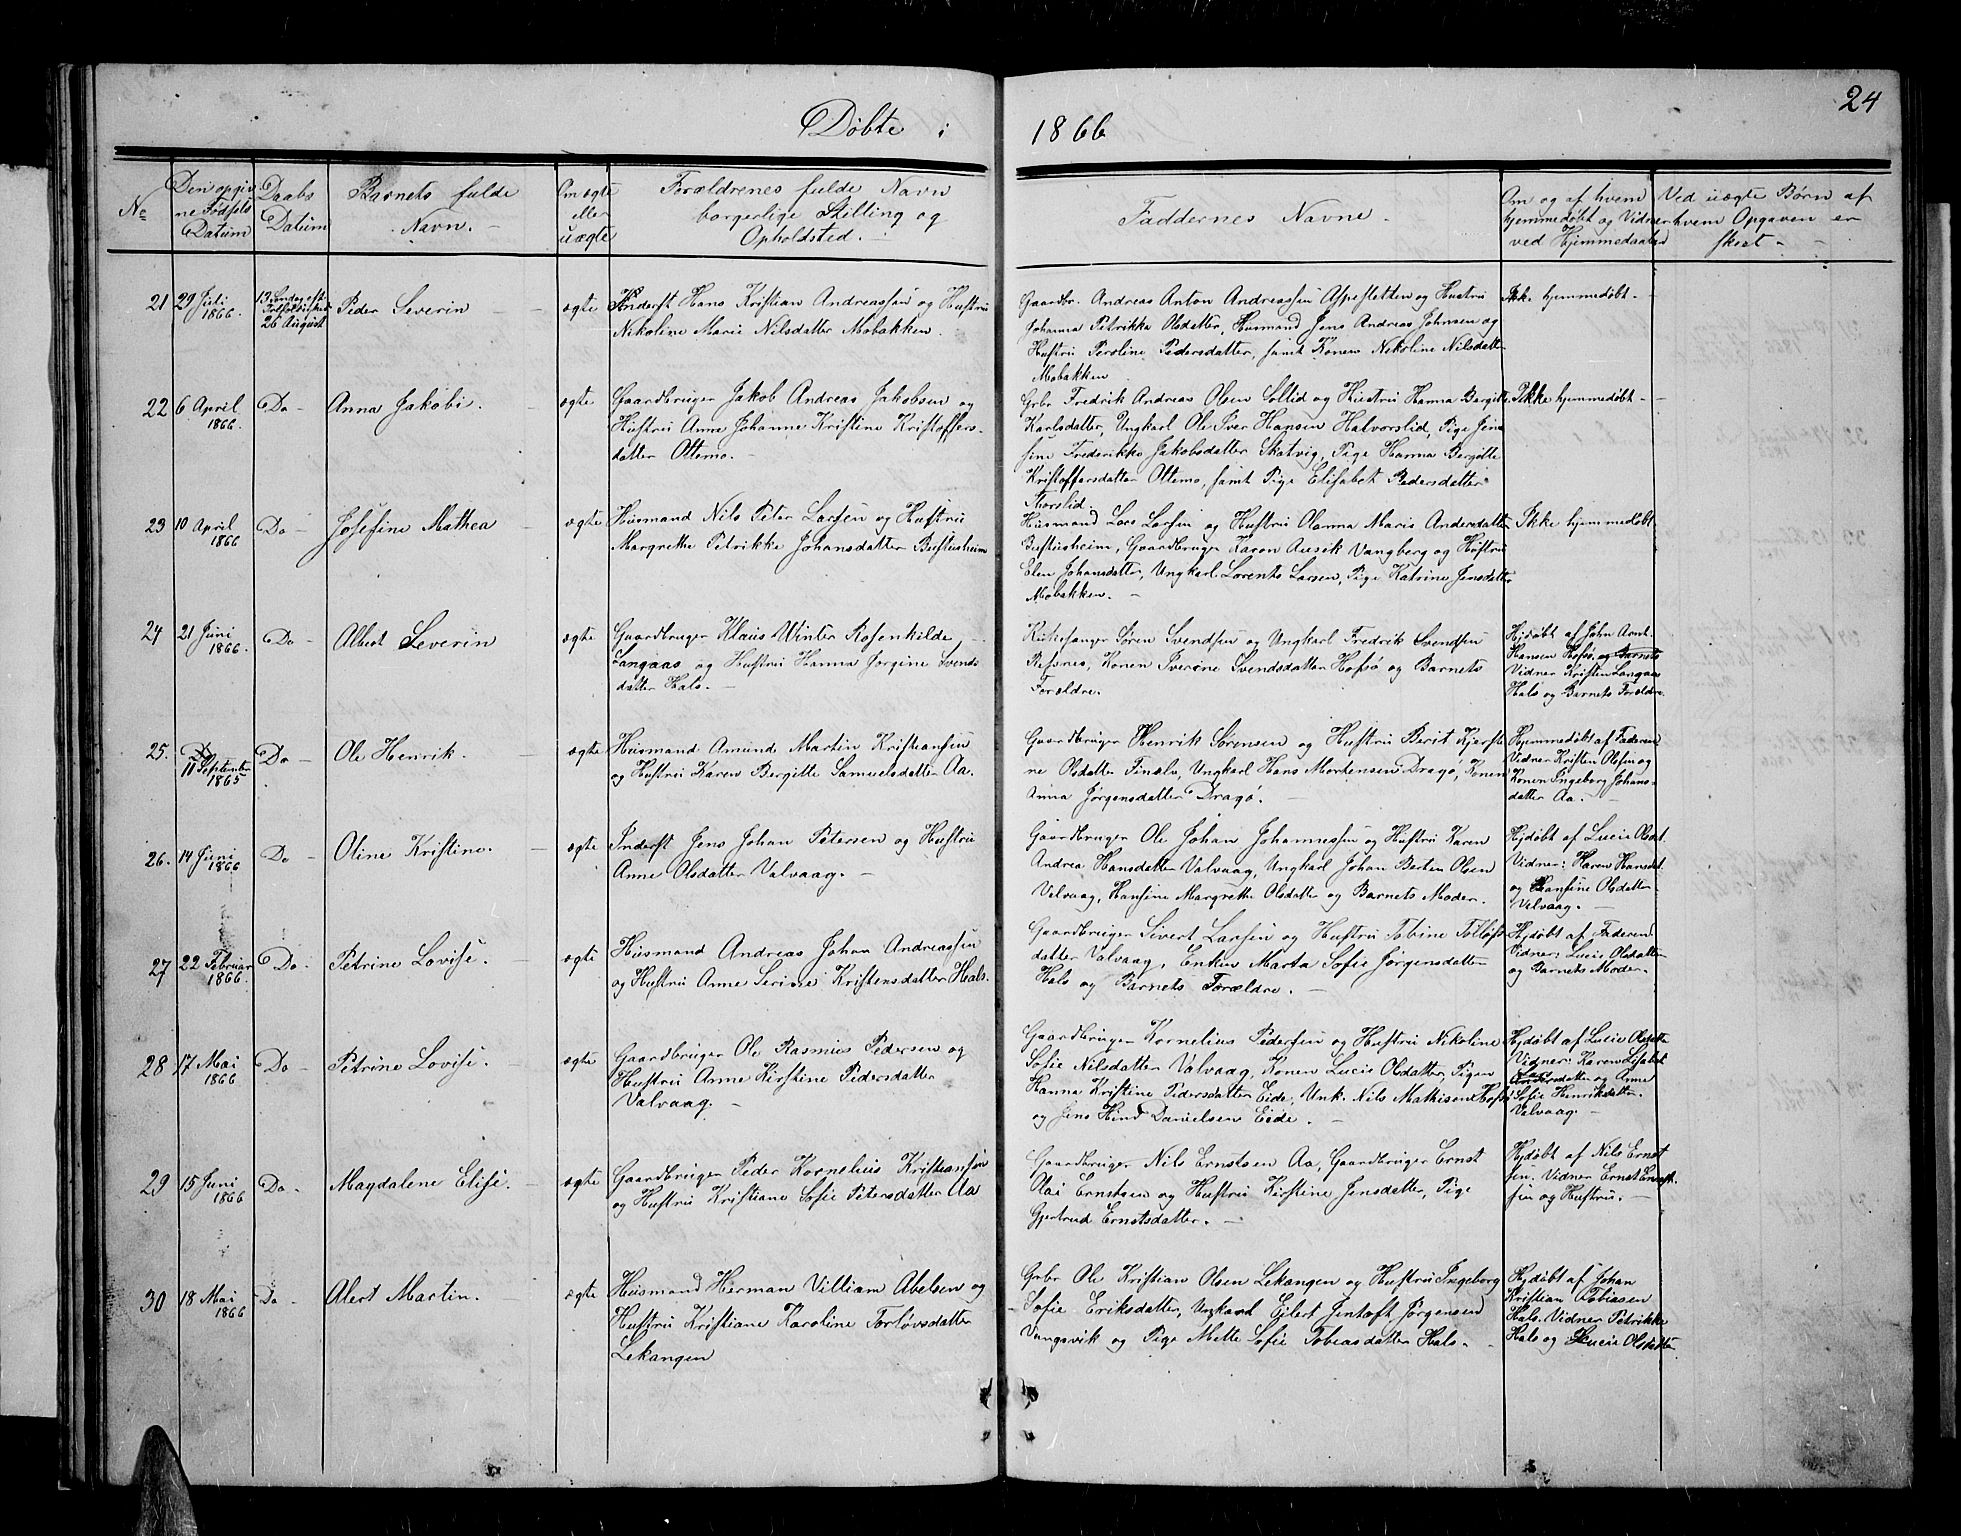 24
Døbte i 1866
No
Den opgiv
ne Fødsels
Datum
Daabs
Datum
Barnets fulde
Navn.
Om ægte
eller
uægte
Forældrenes fulde Navn
borgerlige Stilling og
Opholdsted.
Faddernes Navne.
Om og af hvem
hjemmedøbt og Vidner
ved Hjemmedaaben
Ved uægte Børn af
hvem Opgaven er
skeet
21 29 Juli 1866. 26 August Peder Severin ægte
Inderst Hans Kristian Andreassen og Hustru
Nikoline Marie Nilsdatter Mobakken.
Gaardbr. Andreas Anton Andreassen Aspesletten og Hustru
Johanna Petrikke Olsdatter, Husmand Jens Andreas Johnsen og
Hustru Peroline Pedersdatter, samt Konen Nikoline Nilsdatter
Mobakken
Ikke hjemmedøbt
22 6 April 1866. Do Anna Jakobi. ægte
Gaardbruger Jakob Andreas Jakobsen og
Hustru Anna Johanne Kristine Kristoffers-
datter Ottemo.
Grbr Fredrik Andreas Olsen Soltid og Hustru Hanna Bergitte
Karlsdatter, Ungkarl Ole Iver Hansen Halvorslid, Pige Jen
sine Frederikke Jakobsdatter Skatvig, Pige Hanna Bergitte
Kristoffersdatter Ottemo, samt Pige Elisabet Pedersdatter
Storslid.
Ikke hjemmedøbt
23 10 April 1866 Do Josefine Mathea ægte
Husmand Nils Peter Larsen og Hustru
Margrethe Petrikke Johansdatter
Husmand Lars Larsen og Hustru Olanna Maria Andersdatter
Gaardbruger Karon Ausik Vangberg og Hustru
Elen Johansdatter, Ungkarl Lorents Larsen, Pige Katrine Jensdatter
Mobakken.
Ikke hjemmedøbt
24 21 Juni 1866. Do Albert Severin ægte
Gaardbruger Klaus Winter Rosenkilde
Langaas og Hustru Hanna Jørgine Svends
datter Hals.
Kirkesanger Søren Svendsen og Ungkarl Fredrik Svendsen
Refsnes, Konen Iverine Svendsdatter Hofsø og Barnets
Forældre.
Hjdøbt af John Arnt
Hansen Hofsø, og Barnets
Vidner Kristen Langaas
Hals og Barnets Forældre.
25. 11 September 1865 Do Ole Henrik. ægte
Husmand Amund Martin Kristiansen
og Hustru Karen Bergitte Samuelsdatter Aa.
Gaardbruger Henrik Sørensen og Hustru Berit Kjersti
ne Olsdatter Finælv, Ungkarl Hans Mortensen Dragø, Konen
Anna Jørgensdatter Dragø.
Hjemmedøbt af Faderen
Vidner Kristen Olsen og
Konen Ingeborg Johans-
datter Aa.
26. 14 Juni 1866 Do Oline Kristine. ægte
Inderst Jens Johan Petersen og Hustru
Anne Olsdatter Valvaag.
Gaardbruger Ole Johan Johannessen og Hustru Karen
Andrea Hansdatter Valvaag, Ungkarl Johan Berten Olsen
Valvaag, Hansine Margrethe Olsdatter og Barnets Moder.
Hjdøbt af Lucie Olsdat.
Vidner: Karen Hansdat.
og Hansine Olsdatter
Valvaag.
27 22 Februar 1866. Do. Petrine Lovise. ægte
Husmand Andreas Johan Andreassen
og Hustru Anne Serine Kristensdatter Hals.
Gaardbruger Sivert Larsen og Hustru Tobine Tollefs
datter Valvaag, Enken Marta Sofie Jørgensdatter
Hals og Barnets Forældre.
Hjdøbt af Faderen
Vidner: Lucie Olsdatter
og Barnets Moder.
28 17 Mai 1866 Do Petrine Lovise. ægte
Gaardbruger Ole Rasmus Pedersen og
Hustru Anne Kirstine Pedersdatter
Valvaag.
Gaardbruger Kornelius Pedersen og Hustru Nikoline
Sofie Nilsdatter Valvaag, Konen Lucie Olsdatter, Pigen
Hanna Kristine Pedersdatter Eide, Unk. Nils Mathisen Hofsø
og Jens Hind Danielsen Eide.
Hjdøbt af Lucie Olsdatter
Vidner: Karen Lisabet
Andersdatter og Anne
Sofie Henriksdatter
Valvaag.
29 15 Juni 1866 Do. Magdalene Elise. ægte
Gaardbruger Peder Kornelius Kristiansen
og Hustru Kristiane Sofie Petersdatter Aa
Gaardbruger Nils Ernstsen Aa, Gaardbruger Ernst
Olai Ernstsen og Hustru Kirstine Jensdatter, Pige
Gjertrud Ernstsdatter.
Hjdøbt af Nils Ernst
sen. Vidner Ernst Ernst-
sen og Hustru.
30 18 Mai 1866 Do Alert Martin. ægte
Husmand Herman Villiam Abelsen og
Hustru Kristiane Karoline Torlovsdatter
Lekangen
Grbr Ole Kristian Olsen Lekangen og Hustru Ingeborg
Sofie Eriksdatter, Ungkarl Eilert Jentoft Jørgensen
Vangsvik og Pige Mette Sofie Tobiasdatter Hals.
Hjdøbt af Johan
Kristian Tobiasen
Hals. Vidner Petrikke
Hals og Lucie Olsdatter